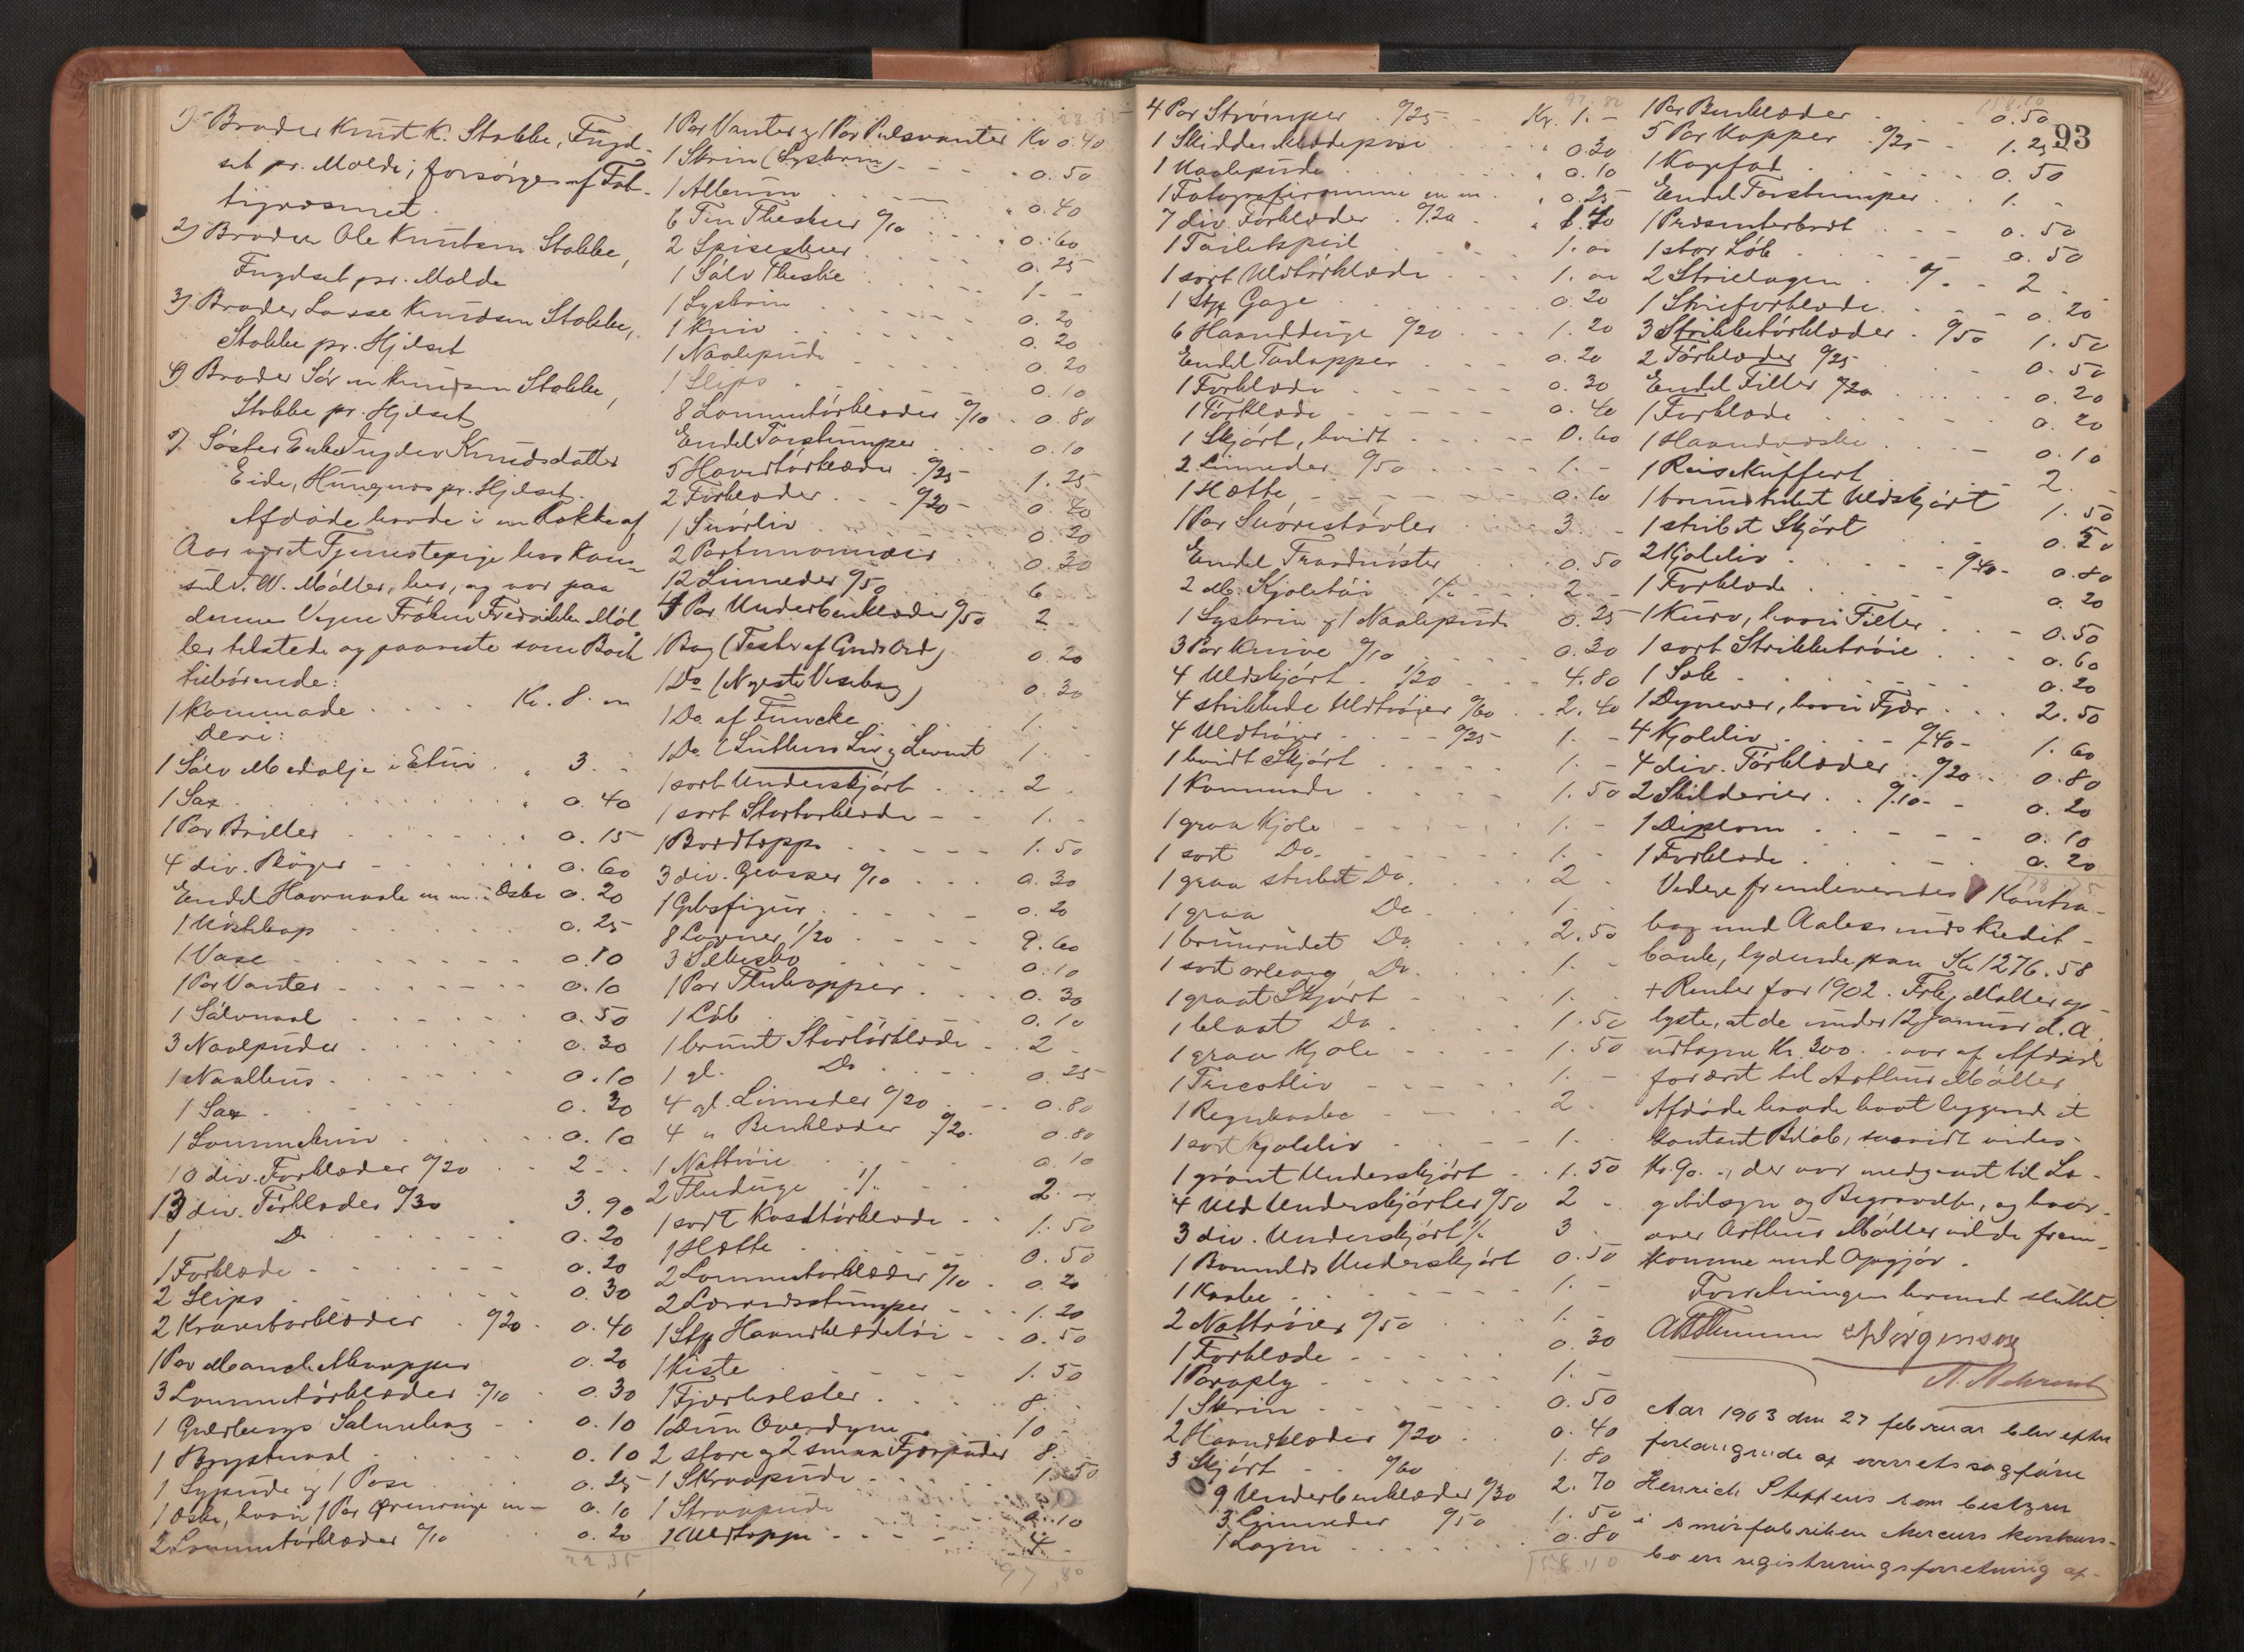 1) Broder Knut K. Stokke, Fugl-
set pr. Molde; forsørges af Fat-
tigvæsenet.
2) Broder Ole Knutsen Stokke,
Fuglset pr. Molde
3) Broder Lasse Knudsen Stokke,
Stokke pr. Hjelset
4) Broder Søren Knudsen Stokke,
Stokke pr. Hjelset
5) Søster Enke Knudsdatter
Eide, pr. Hjelset.
Afdøde havde i en Række af
Aar været Tjenestepige hos Kon-
sul J. W. Møller, her, og var paa
dennes Vegne Frøken Fredrikke Møl-
ler tilstede og paaviste som Boet
tilhørende:
1 Kommode . . . . Kr. 8. "
Deri:
1 Sølv Medalje i Etui . " 3. -
1 Sax . . . . " 0.40
1 Par Briller . . . " 0.15
4 div. Bøger - . . " 0.60
Endel Haarnaale m m. i Æske 0.20
1 . . . 0.25
1 Vase . . . 0.10
1 Par Vanter . . . 0.10
1 Sølvnaal . . . 0.50
3 Naalepuder . . . 0.30
1 Naalhus . . . 0.10
1 Sax . . . 0.30
1 Lommekniv . . . 0.10
10 div. Forklæder %20 . . 2. -
13 div. Tørklæder %30 . 3.90
1 Do . . . 0.20
1 Forklæde . . . 0.20
2 Slips . . . 0.30
2 %20 . 0.40
1 Par 0.20
3 Lommetørklæder %10 . 0.30
1 Guldbergs Salmebog . . 0.10
1 Brystnaal . . . 0.10
1 Sypude og 1 Pose . . 0.25
1 Æske, hvori 1 Par Ørenringe m- 0.10
2 Lommetørklæder %10 . 0.20
22,35
22.35
1 Par Vanter og 1 Par Pulsvanter Kr 0.40
1 Skrin (Syskrin) . . " 0.50
1 Album . . . " 0.40
6 Tin Theskeer %10 . . " 0.60
2 Spiseskeer . . . 0.25
1 Sølv Theske . . . 1. -
1 Syskrin . . . 0.20
1 Kniv . . . 0.20
1 Naalepude . . . 0.20
1 Slips . . . 0.10
8 Lommetørklæder %10 . 0.80
Endel Tøistumper . . 0.10
5 Hovedtørklæder %25 1.25
2 Forklæder . . %20 - 0.40
1 Snørliv . . . 0.20
2 Portemonnæer . . 0.30
12 Linneder %50 . . 6 . -
4 Par Underbenklæder %50 2. -
1 Bog (Tolv af Guds Ord) . 0.20
1 Do (Nyeste Visebog) 0.30
1 Do af Funcke . . 1. -
1 Do (Luthers Liv og Levnet 1. -
1 sort Underskjørt . . 2 .
1 sort Stortørklæde - - 1. -
1 Bordteppe . . . 1.50
3 div. Glasser %10 . . 0.30
1 Gibsfigur . . . 0.20
8 Lagner 1/20 . . 9.60
3 . . . 0.10
1 Par Thekopper . . 0.30
1 Løb . . . 0.10
1 brunt Stortørklæde - . 2 -
1 gl. Do . . . 0.25
4 gl. Linneder %20 . - 0.80
4 " Benklæder %20. 0.80
1 Nattrøie . . . 0.10
2 Theduge . 1/. - . 2. -
1 sort Kastetørklæde - . 1.50
1 Hætte . . . 0.50
2 Lommetørklæder %10 . 0.20
2 Lærredsstumper . . 1.20
1 Stk Haandklædetøi . . 0.50
1 Kiste . . . 1.50
1 Fjærbolster . . . 8 .
1 Dun Overdyne . . 10 -
2 store og 2 smaa Fjærpuder 8.
1 Skraapude . . . 1.50
1 Skraapude 0.10
1 Uldteppe . . . 4 -
97,80
97.80
4 Par Strømper . %25 - Kr. 1. -
1 " 0.30
1 Naalepude . . . " 0.10
1 Fotografiramme m m . " 0.25
7 div. Forklæder . %20 " 1.40
1 Toiletspeil . . . 1. "
1 sort Uldtørklæde . . 1. "
1 Stk Gaze . . . 0.20
6 Haandduge %20 . . 1.20
Endel Tøilapper . . 0.20
1 Forklæde . . . 0.30
1 Tørklæde . . . 0.40
1 Skjørt, hvidt . . . 0.60
2 Linneder %50 . . 1. -
1 Hætte . . . 0.10
1 Par Snørestøvler . . 3 -
Endel . . 0.50
2 Kjoletøi . 1/. - . 2 -
1 Syskrin og 1 Naalepude 0.25
3 Par Knive %10 . . 0.30
4 Uldskjørt . 1/20 . . 4.80
4 strikkede Uldtrøier %60 . 2.40
4 Uldtrøier . . %25 1. -
1 hvidt Skjørt . . . 1. -
1 Kommode . . . 1.50
1 graa Kjole . . . 1. -
1 sort Do. . . . 1. -
1 graa stribet Do. . . 2 .
1 graa Do . . 1. -
1 brunrudet Do . . 2.50
1 sort Do. . . 1. -
1 graat Skjørt . . 1. -
1 blaat Do . . . 1.50
1 graa Kjole . . . 1.50
1 Tricotliv . . . 1. -
1 Regnkaabe . . . 2 .
1 sort Kjoleliv . . . 1. -
1 grønt Underskjørt . . 1.50
4 Uld Underskjørter %50 2 -
3 div. Underskjørt 1/. 3 .
1 Bomulds Underskjørt 0.50
1 Kaabe . . . 1. -
2 Nattrøier %50 . . 1. -
1 Forklæde . . . 0.30
1 Paraply . . . 1. -
1 Skrin . . . 0.50
2 Haandklæder %20 . . 0.40
3 Skjørt . . %60 1.80
9 Underbenklæder %30 2.70
3 Linneder %50 1.50
1 Lagen . . . 0.80
158.10
158.10
93
1 Par Benklæder . . . 0.50
5 Par Kopper . %25 - 1.25
1 Kagefad . . . 0.50
Endel Tøistumper . . 1. -
1 Presenterbret . . - 0.50
1 stor Løb . . . 0.50
2 Strielagen . %. - 2 .
1 Strieforklæde . . . 0.20
3 Strikketørklæder . %50 1.50
2 Tørklæder %25 . 0.50
Endel Filler %20 . . 0.20
1 Forklæde . . . 0.20
1 Haandvæske . . . 0.10
1 Reisekuffert . . 2. -
1 brunstribet Uldskjørt 1.50
1 stribet Skjørt 0.50
2 Kjoleliv . . . %40 - 0.80
1 Forklæde . . . 0.20
1 Kurv, hvori Filler . . 0.50
1 sort Strikketrøie . . 0.60
1 Sæk . . . 0.20
1 Dynevar, hvori Fjær . . 2.50
4 Kjoleliv . . . %40 - 1.60
4 div. Tørklæder . %20 . . 0.80
2 Skilderier . . %10 - - 0.20
1 Diplom . . . 0.10
1 Forklæde . . . 0.20
178.75
Videre fremlevertes Kontra-
bog med Aalesunds Kredit-
bank, lydende paa Kr 1276.58
+ Renter for 1902. Frk. Møller op-
lyste, at de under 12 Januar d. A.
udtagne Kr. 300. - var af Afdøde
foræret til Arthur Møller
Afdøde havde havt liggende et
kontant Beløb, saavidt vides
Kr. 90. -, der var medgaaet til Læ-
getilsyn og Begravelse, og hvor-
over Arthur Møller vilde frem-
komme med Opgjør.
Forretningen hermed sluttet.
Jørgensen
Aar 1903 den 27 februar blev efter
forlangende af overretssagfører
Henrich Steffens som bestyrer
i smørfabriken Mercurs konkurs-
bo en registreringsforretning af-